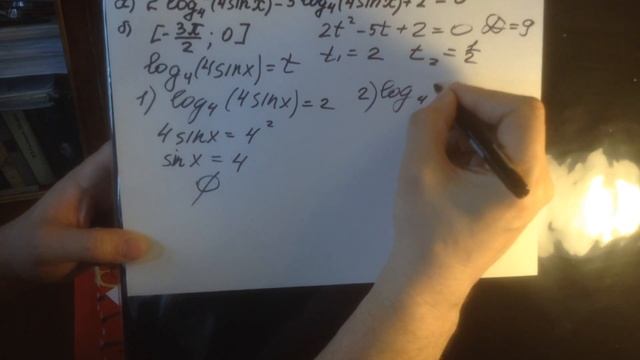 а) 2 log₄²(4sinx) - 5 log₄(4sinx) + 2 = 0
б) [-3π/2 ; 0] 2t² - 5t + 2 = 0 D = 9
log₄(4sinx) = t t₁ = 2 t₂ = 1/2
1) log₄(4sinx) = 2 2) log₄
4sinx = 4²
sinx = 4
∅